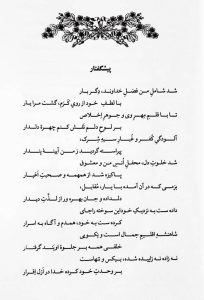 پیشگفتار
شد شامل من فضل خداوند، دگر بار
با لطف خود از روی کرم، گشت مرا یار
تا با قلم مهر وی و جوهر اخلاص
بر لوح دلم نقش کنم چهرۀ دلدار
آلودگی کفر و غبار سیه شرک،
پیراسته گردید ز من آینۀ پندار
شد خلوت دل، محفل انس من و معشوق
پاکیزه شد از همهمه و صحبت اغیار
بزمی که در آن آمده با یار، مقابل،
دلداده و جان بهره ور از لذت دیدار
داده ست به نزدیک خود این سوخته را جای
کرده ست به خود، همدم و آگاه به اسرار
شاهنشه اقلیم جمال است و نکویی
خلقی همه بر جلوۀ اویند گرفتار
نه زاده نه زاییده شده، بیکس و تنهاست
بر وحدت خود کرده خدا در ازل اقرار